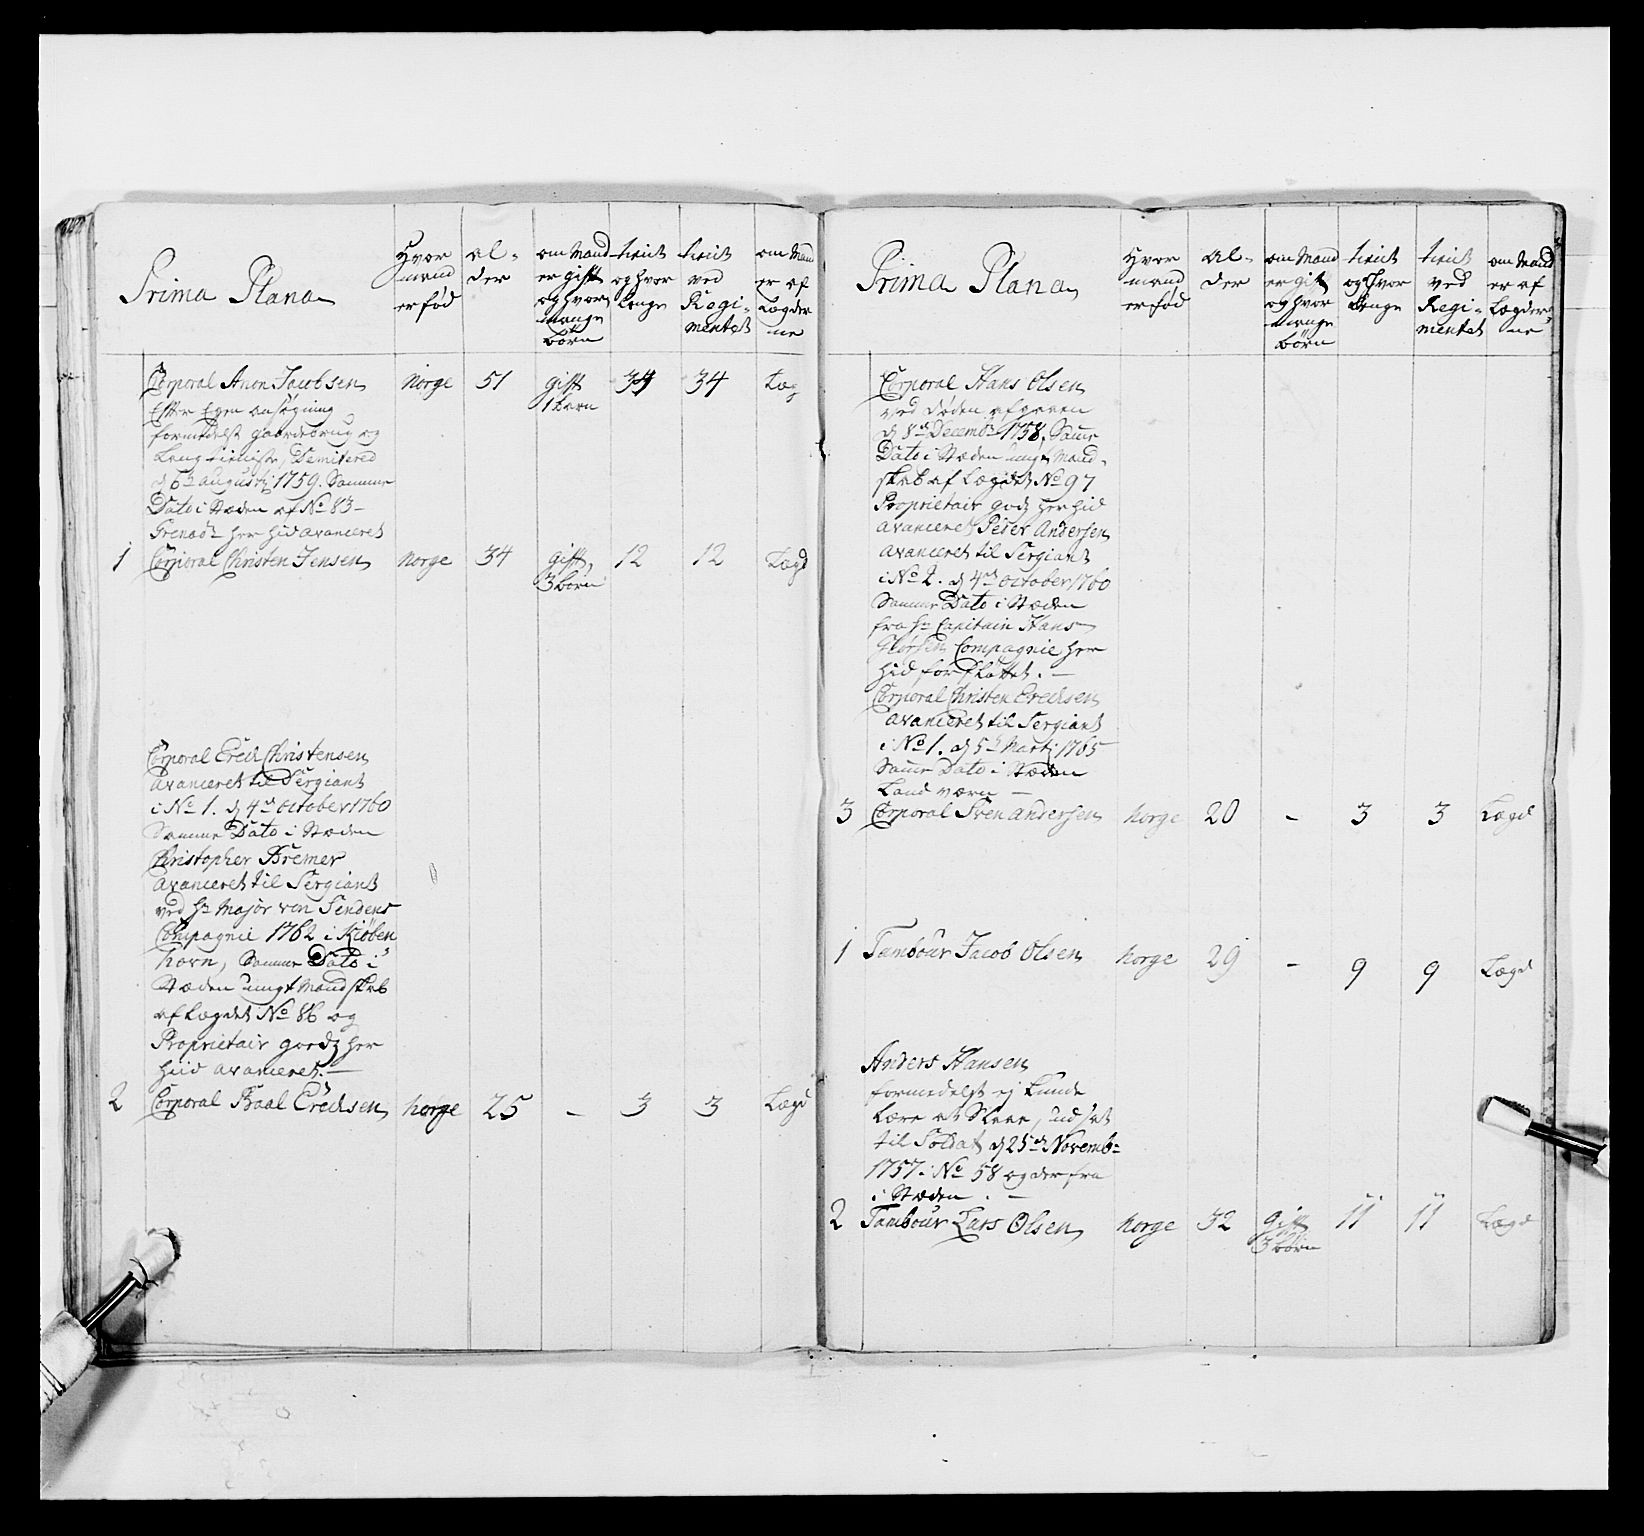 Prima Plana
Hvor mand er fød
al- der
om Mand er gift og hvor mange børn
tient og hvor Lenge
tient ved Regi- mentet
om Man er af Lægder ne
Corporal Anon Jacobsen norge 51 gift 1 barn 34 34 Læg
Efter Egen ansøgning
formedelst gaardebrug og
Lang tieniste, Demitered
d 6th augusti 1759. Samme
Dato i Stæden af No 83
Grenadr her hid avanceret
1 Corporal Christen Jensen norge 34 gift, 3 børn 12 12 Lægd
Corporal Erich Christensen
avanceret til Sergiant
i No 1. d 4de october 1760
Samme Dato i Stæden
Christopher Bremer
avanceret til Sergiant
ved Hr Major von Sendens
Compagnie 1762 i Kiøben
havn, Samme Dato i
Stæden ungt Mandskab
af Lægdet No 86 og
Proprietair godz her
hiid avanceret.
2 Corporal Paal Erichsen norge 25 - 3 3 Lægd
Prima Plana
Hvor mand er fød
Al- der
om Mand er gift og hvor mange børn
tient og hvor Lenge
tient ved Regi- mentet
om Mand er af Lægder- ne
Corporal Hans Olsen
ved døden afgaaen
d 8de Decembr 1758. Samme
Dato i Stæden ungt Mand-
skab af Lægdet No 97
Proprietair godz her hid
avanceret Peder Andersen
avanceret til Sergiant
i No 2. d 4de october 1760
Samme Dato i Stæden
fra Hr Capitain Hans
Compagnie her
hid forfløttet. -
Corporal Christen Erichsen
avanceret til Sergiant
i No 1. d 5te Marti 1765
Samme Dato i Stæden
Land værn -
3 Corporal Sven Andersen norge 20 - 3 3 Lægd
1 Tambour Jacob Olsen norge 29 - 9 9 Lægd
Anders Hansen
formedelst ej kunde
Lære at Slaae, udsat
til Soldat d 25de Novembr
1757. i No 58 og der fra
i Stæden . -
2 Tambour Lars Olsen norge 32 Gift 3 børn 11 11 Lægd